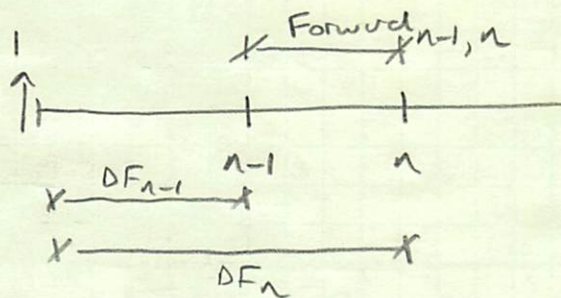 1
Forward n-1, n
n-1 n
DF n-1
DF n